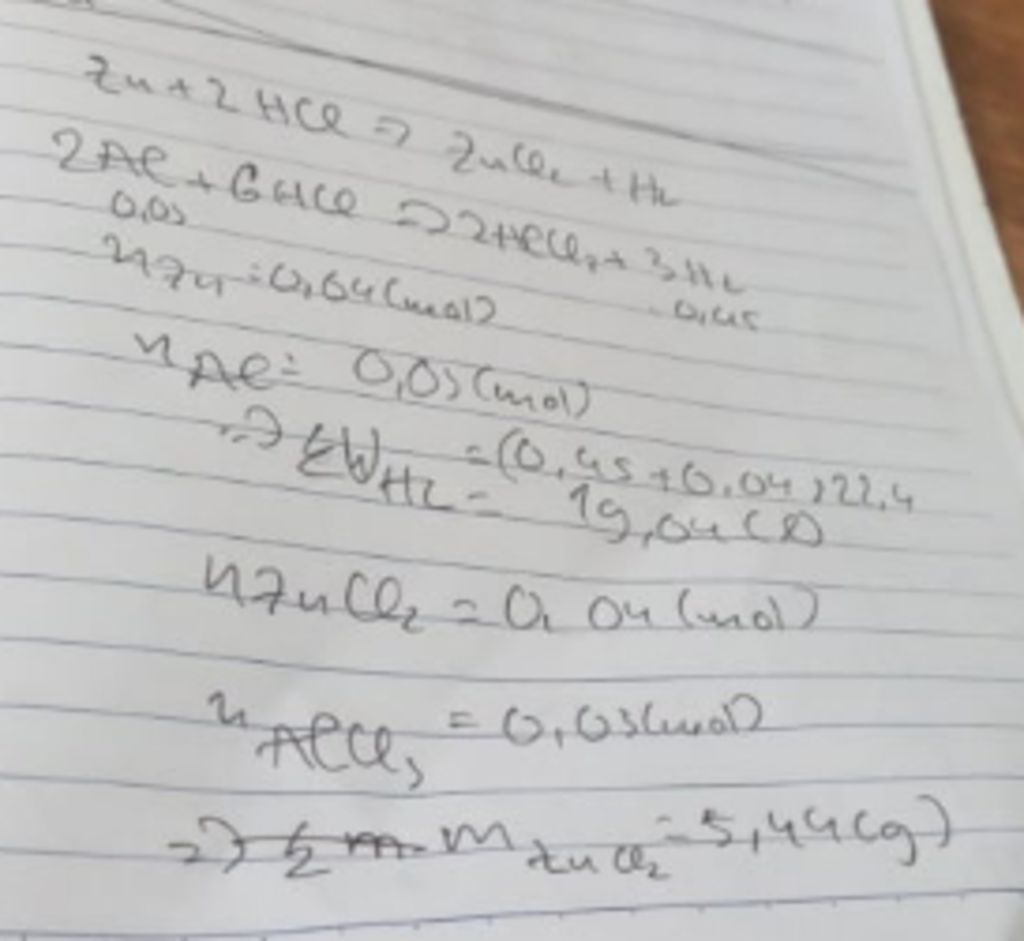 Zn + 2HCl => ZnCl2 + H2
2Al + 6HCl => 2AlCl3 + 3H2
0,03 0,45
nZn = 0,04(mol)
nAl = 0,03(mol)
=> ΣVH2 = (0,45+0,04)22,4
= 19,04(l)
nZnCl2 = 0,04(mol)
nAlCl3 = 0,03(mol)
=> mZnCl2 = 5,44(g)